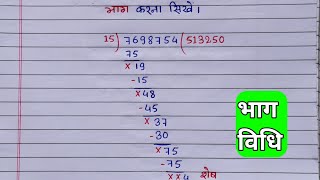 भाग करना सिखे।
15) 7698754 (513250
75
×19
-15
×48
-45
×37
-30
×75
-75
××4 शेष
भाग
विधि